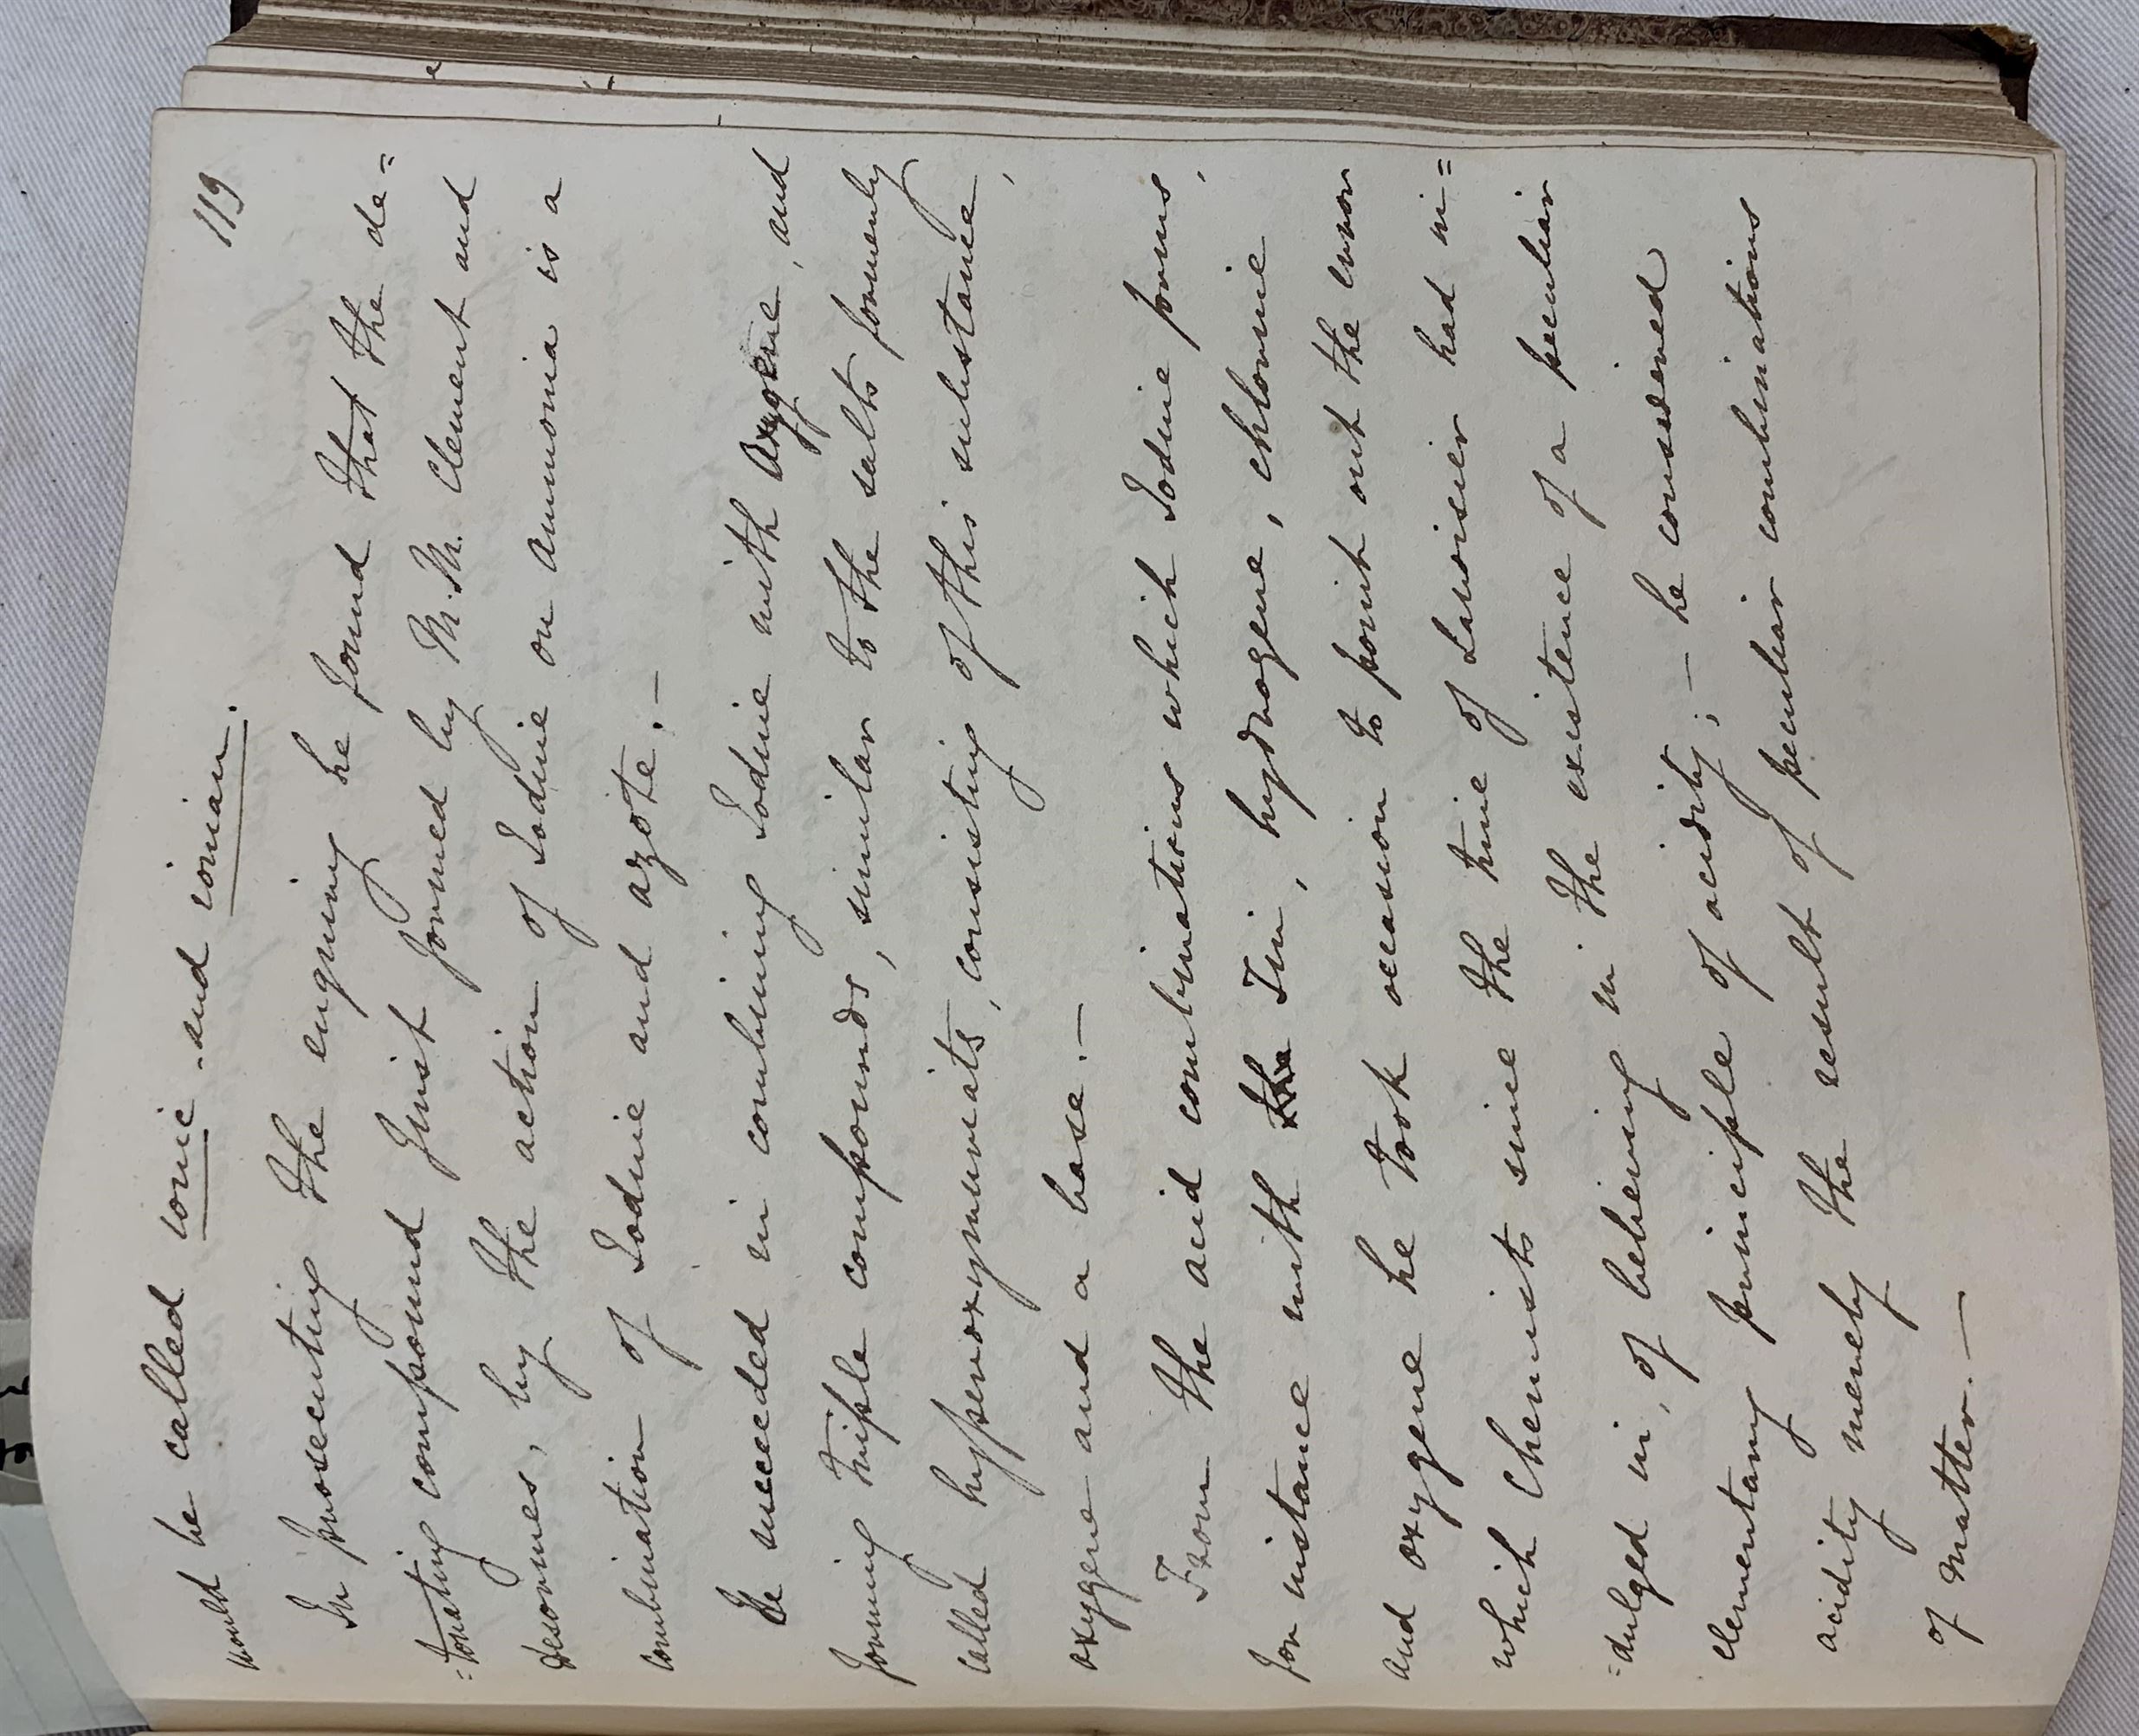 119
would be called ionic - and ionian.
In prosecuting the enquiry he found that the de=
=tonating compound first formed by M.M. Clement and
Desormes, by the action of Iodine on Ammonia is a
combination of Iodine and azote. -
He succeeded in combining Iodine with Oxygene, and
forming triple compounds, similar to the salts formerly
called hyperoxymuriats, consisting of this substance,
oxygene and a base. -
From the acid combinations which Iodine forms,
for instance with the Tin, hydrogene, chlorine
and oxygene he took occasion to point out the error
which Chemists since the time of Lavoisier had in=
=dulged in, of believing in the existence of a peculiar
elementary principle of acidity; - he considered
acidity merely the result of peculiar combinations
of matter. -